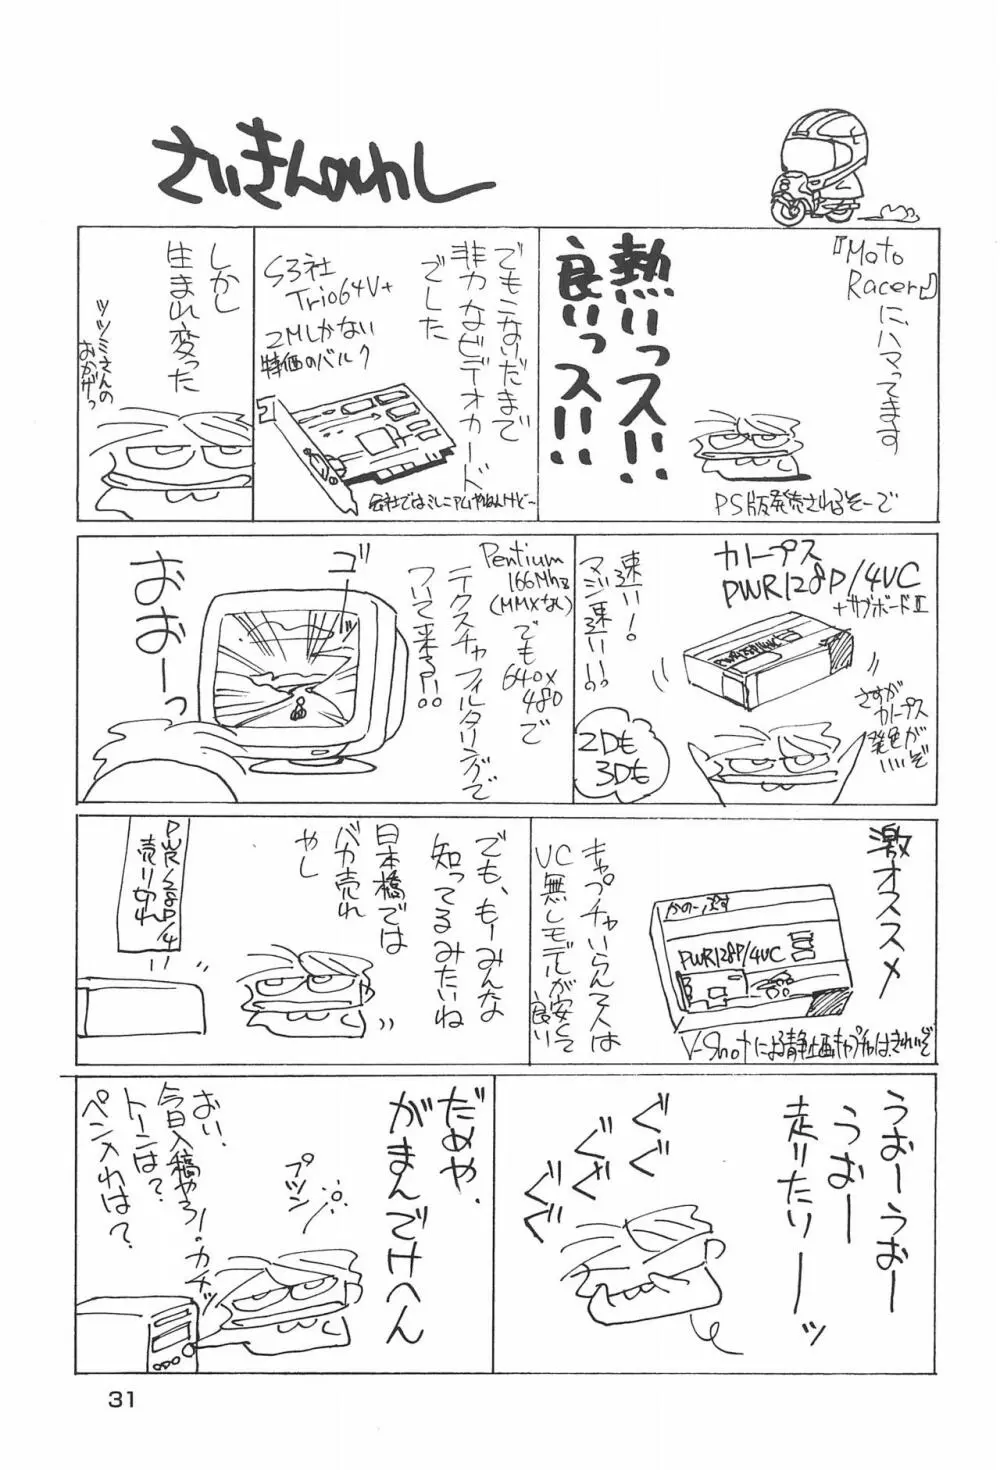 さいきんのわし
『Moto
Racer』に、ハマってます
熱いっス!!
良いっス!!
PS版発売されるそーで
でもこないだまで
非力なビデオカード
でした
S3社
Trio64V+
2Mしかない
特価のバルク
会社ではミレニアムやねんけど〜
しかし
生まれ変った
ツツミさんの
おかげっ
カノープス
PWR128P/4VC
+サブボードⅡ
速い!
マジ速い!!
PWR128P/4VC
さすが
カノープス
発色が
いいぞ
2Dも
3Dも
Pentium
166Mhz
(MMXなし)
でも
640×
480で
テクスチャフィルタリングで
ついて来る!!
ゴーッ
おおーっ
激オススメ
かのーぷす
PWR128P/4VC
V-Shotによる静止画キャプチャは、きれいぞ
キャプチャいらん人は
VC無しモデルが安くて
良い
でも、もーみんな
知ってるみたいね
日本橋では
バカ売れ
やし
PWR128P/4
売り切れ
うおーうおー
うおー
走りたりーッ
ぐぐ
ぐぐ
ぐぐ
だめや、
がまんでけへん
プツン
おい、
今日入稿やろ!
トーンは?
ペン入れは?
カチッ
31